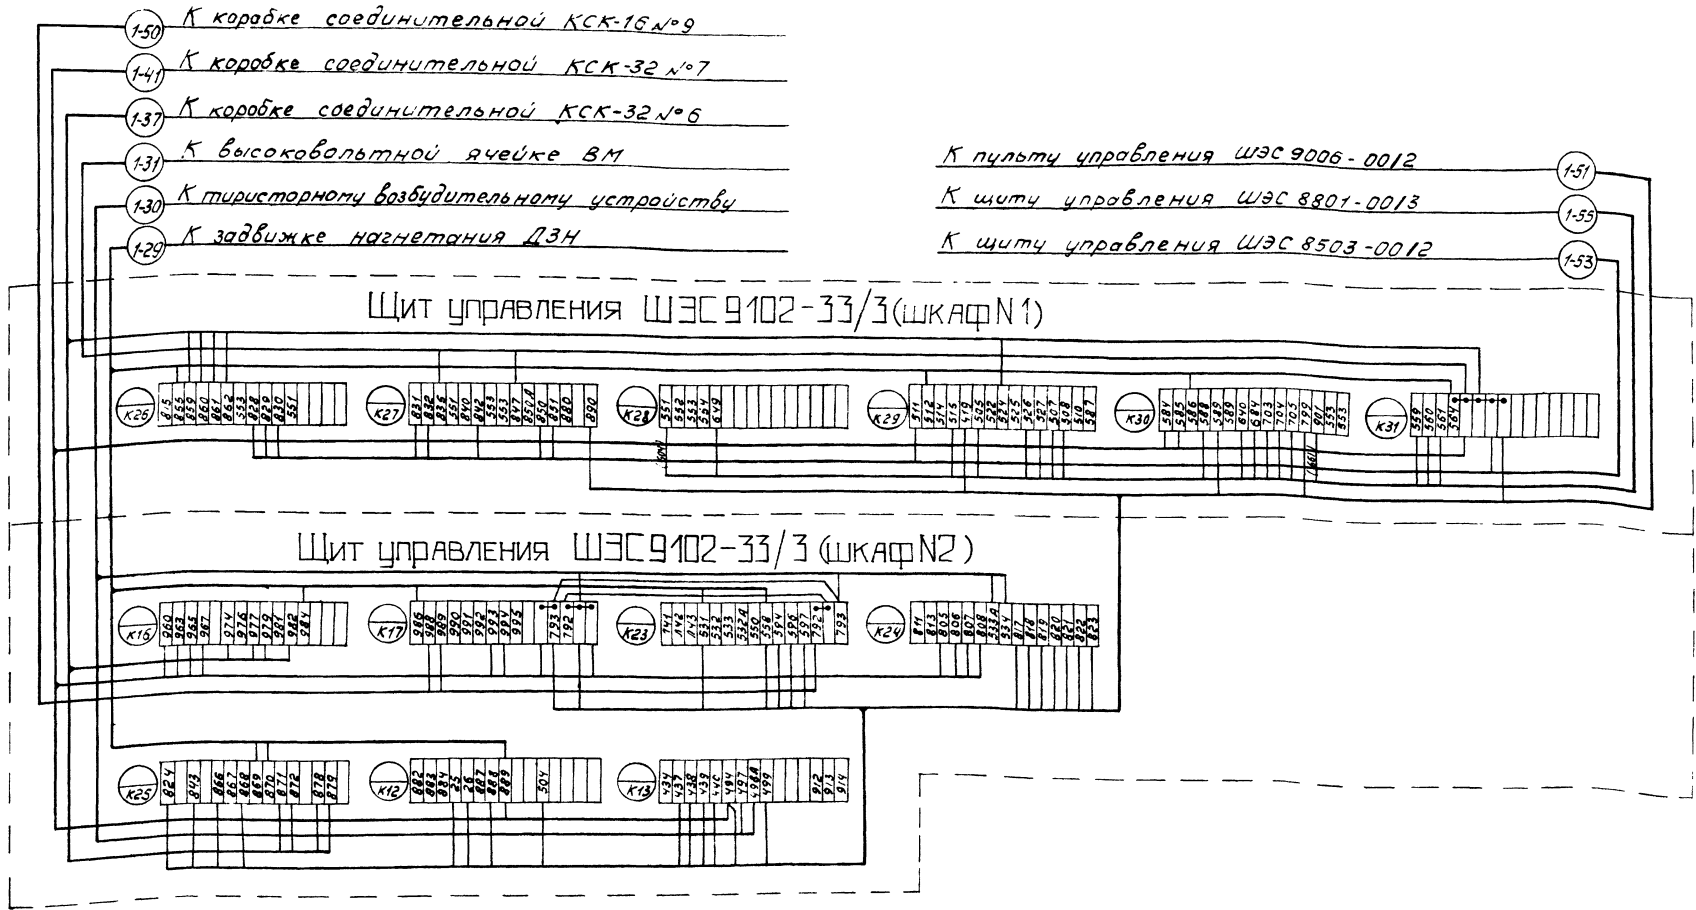 1-50 К коробке соединительной КСК-16 №9
1-41 К коробке соединительной КСК-32 №7
1-37 К коробке соединительной КСК-32 №6
1-31 К высоковольтной ячейке ВМ
1-30 К тиристорному возбудительному устройству
1-29 К задвижке нагнетания ДЗН
К пульту управления ШЭС 9006-0012 1-51
К щиту управления ШЭС 8801-0013 1-55
К щиту управления ШЭС 8503-0012 1-53
Щит управления ШЭС9102-33/3(шкаф N1)
К26 815 855 859 860 861 862 553 828 829 830 551
К27 831 832 836 551 840 842 553 553 847 851А 850 851 880 890
К28 551 552 553 554 649
К29 511 512 514 515 519 505 522 524 525 526 527 507 508 510 587
К30 584 585 586 588 589 589 640 684 703 704 705 799 901 553 553
К31 559 560 561 564
Щит управления ШЭС9102-33/3 (шкаф N2)
К16 960 963 965 967 974 976 977 979 981 982 984
К17 986 988 989 990 991 992 993 994 995 793 792
К23 141 142 143 531 532 533 532А 550 558 594 596 597 792 793
К24 811 813 805 806 807 808 533А 534 817 818 819 820 821 822 823
К25 824 843 866 867 868 869 870 871 872 878 879
К12 882 883 884 25 26 887 888 889 504
К13 434 437 438 439 440 494 497 498А 499 912 913 914